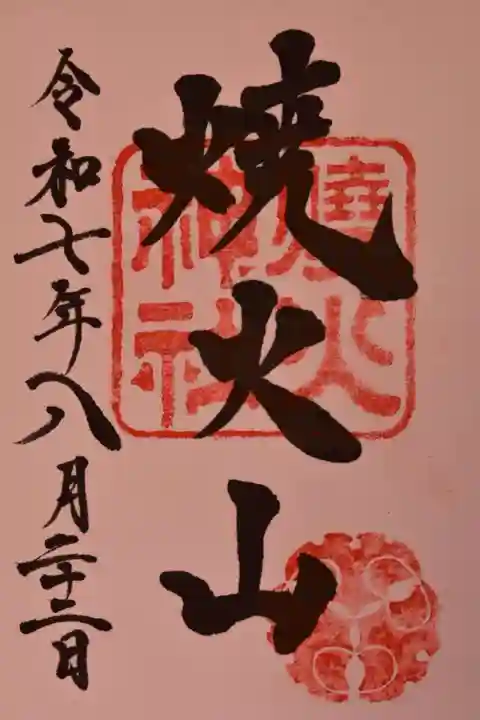 焼火山
焼火
神社
令和七年八月二十三日